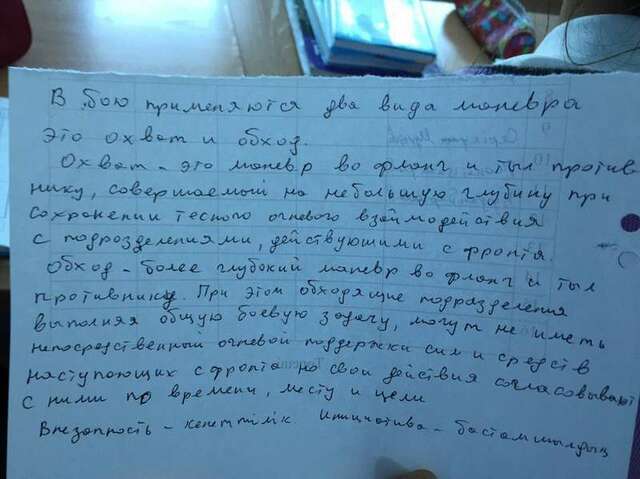 В бою применяются два вида маневра
это охват и обход.
Охват - это маневр во фланг и тыл против-
нику, совершаемый на небольшую глубину при
сохранении тесного огневого взаймодействия
с подразделениями, действующими с фронта.
Обход - более глубокий маневр во фланг и тыл
противнику. При этом обходящие подразделения
выполняя общую боевую задачу, могут не иметь
непосредственный огневой поддержки сил и средств
наступающих с фронта но свои действия согласовывают
с ними по времени, месту и цели
Внезапность - кенеттілік Инициатива - бастамшылдық